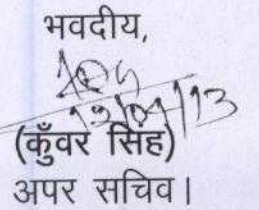 भवदीय,
12/04/13
(कुँवर सिंह)
अपर सचिव।